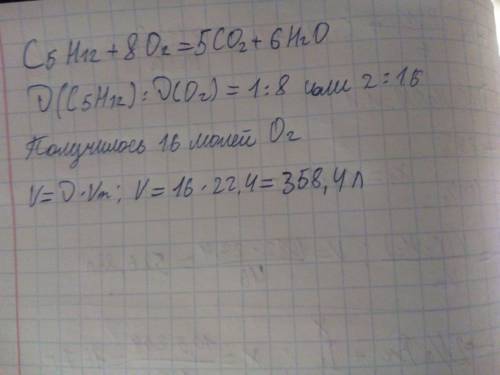 C₅H₁₂ + 8O₂ = 5CO₂ + 6H₂O
D(C₅H₁₂) : D(O₂) = 1 : 8 или 2 : 16
Получилось 16 молей O₂
V = D · Vm; V = 16 · 22,4 = 358,4 л